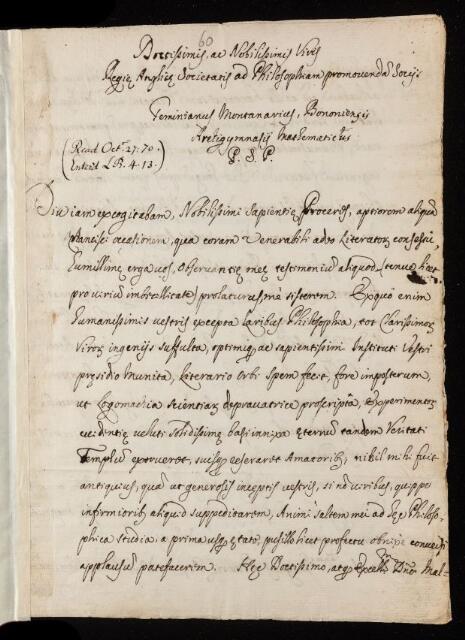 60
Doctissimis, ac Nobilissimis Viris
Regię Anglię Societatis ad Philosophiam promovendā Socijs
Geminianus Montanarius, Bononiensis
Archigymnasij Mathematicus
P. S. P.
(Read Octr. 27. 70.
Enterd L.B. 4. 13.)
Diu iam excogitabam, Nobilissimi Sapientię Proceres, aptiorem aliquā
nancisci occasionem, qua coram Venerabili adeo Literatorū consessu,
humillimę erga vos, observantię meę testimoniū aliquod (tenue licet
pro viriū imbecillitate) prolaturus me sisterem. Ex quo enim
humanissimis vestris excepta laribus Philosophia, tot Clarissimor.
Viror. ingenijs suffulta, optimiq; ac sapientissimi Instituti Vestri
pręsidio munita, Literario Orbi Spem fecit, fore in posterum,
ut Logomachia scientiar. depravatrice proscripta, Experimentor.
evidentię veluti solidissimę basi innixa ęternum tandem Veritati
Templū extrueret, suisq; reseraret Amatorib; nihil mihi fuit
antiquius, quā ut generosis inceptis vestris, si nō viribus, quippe
infirmiorib; aliquid suppeditarem, Animi saltem mei ad hęc Philoso-
phica studia, a prima usq; ętate, pusillo licet profectu conversi
applausū patefacerem. Hęc Doctissimo, atq; Excell.mo Dño Mal-